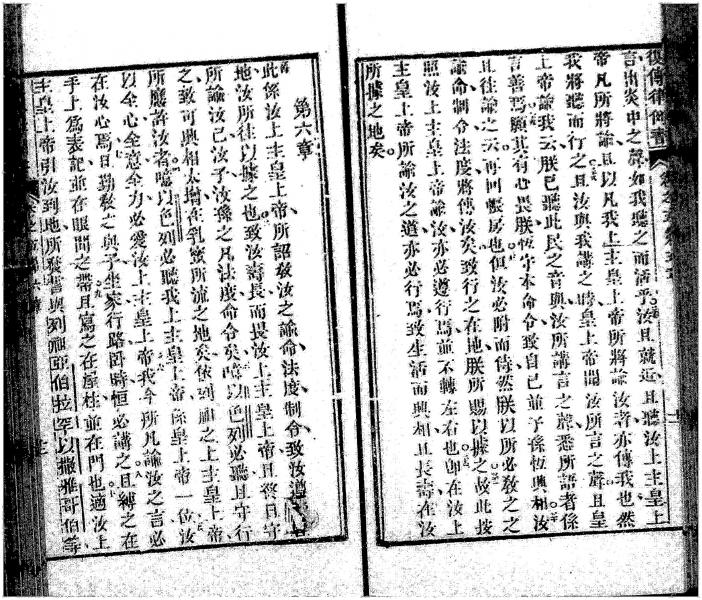 復傳律例書
言出炎中之聲如我聽之而活乎汝且就近且聽汝上主皇上
帝凡所將諭且以凡我上主皇上帝所將諭汝者亦傳我也然
我將聽而行之且汝與我講之時皇上帝聞汝所言之聲且皇
上帝諭我云朕已聽此民之音與汝所講言之聲悉所語者係
言善焉願其有心畏朕恆守本命令致自己並子孫恆興相汝
且往諭之云再回帳房也但汝必附而侍然朕以所必敎之之
諭命制令法度將傳汝矣致行之在地朕所賜以據之故此按
照汝上主皇上帝諭汝亦必遵行焉並不轉左右也卽在汝上
主皇上帝所諭汝之道亦必行焉致生活而興相且長壽在汝
所據之地矣
第六章
此係汝上主皇上帝所詔敎汝之諭命法度制令致汝遵
地汝所往以據之也致汝壽長而畏汝上主皇上帝且終日守
所諭汝已汝子汝孫之凡法度命令矣嗚以色列必聽且守行
之致可興相太增在乳蜜所流之地矣依列祖之上主皇上帝
所應許汝者嗚以色列必聽我上主皇上帝係皇上帝一位汝
以全心全意全力必愛汝上主皇上帝我今所凡諭汝之言必
在汝心焉且勤敎之與子坐家行路臥時恆必講之且縛之在
手上爲表記並在眼間之帶且寫之在屋柱並在門也適汝上
主皇上帝引汝到地所發誓與列祖亞伯拉罕以撒雅哥伯等